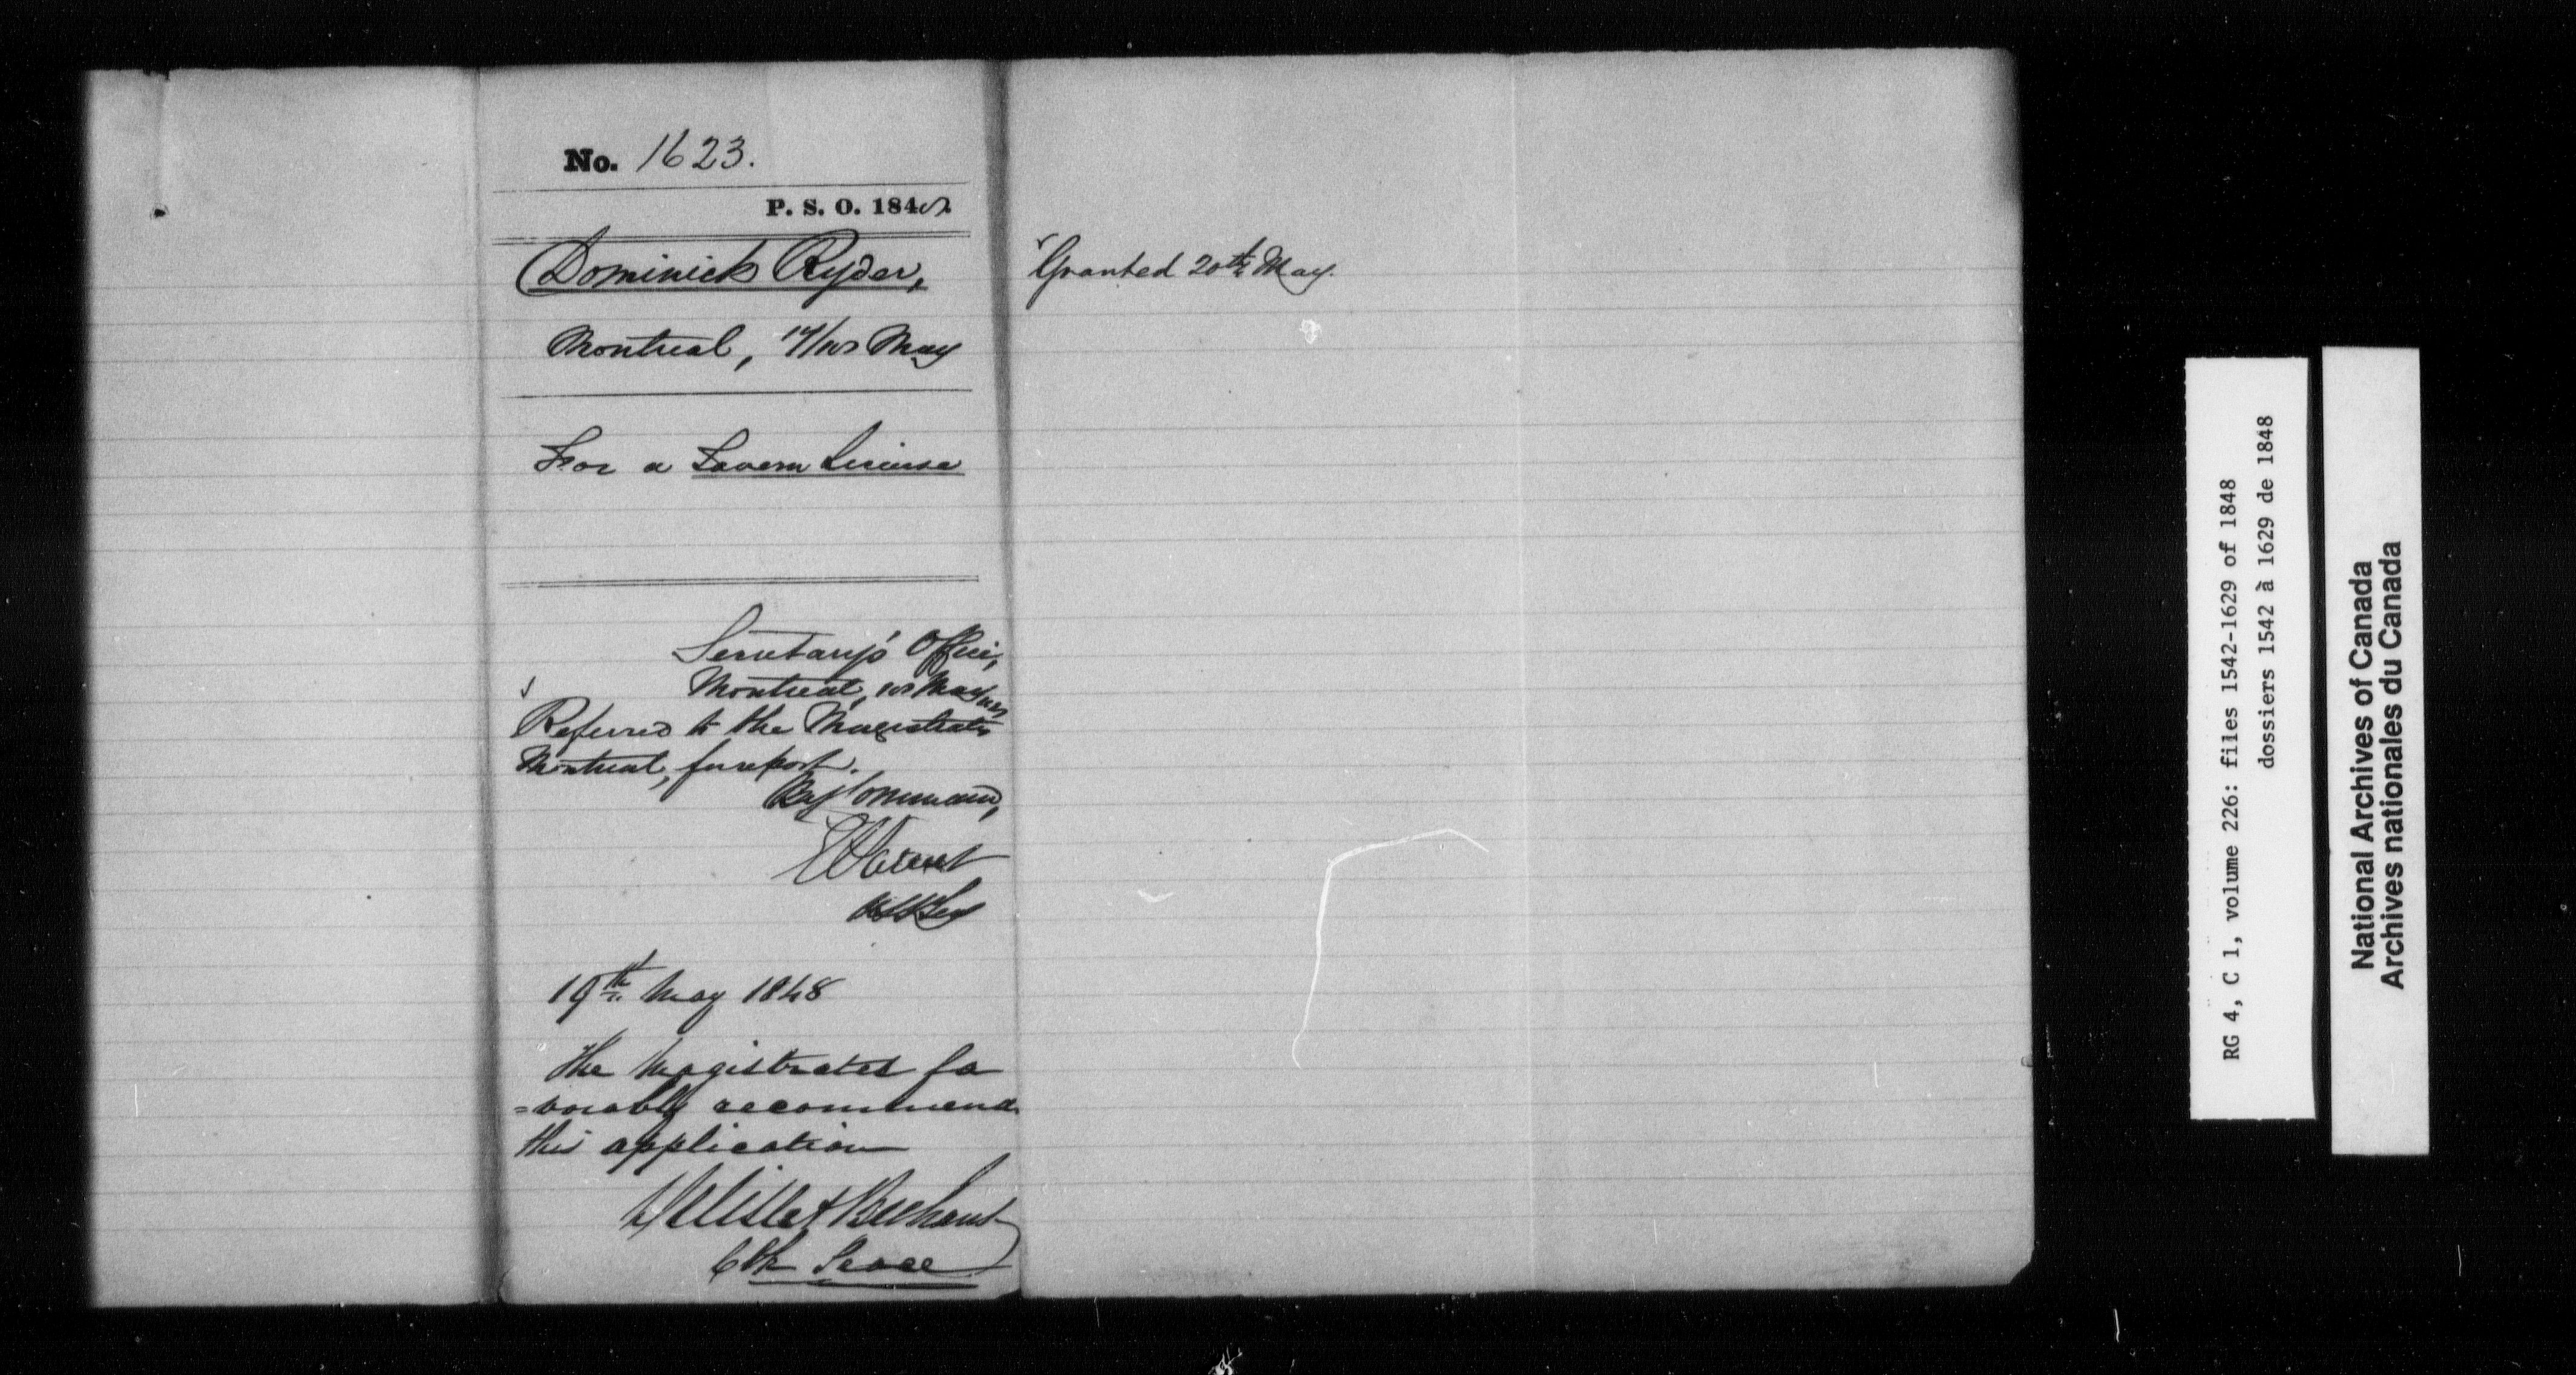 No. 1623.
P. S. O. 1848.
Dominick Ryder,
Montreal, 17/18 May
For a Tavern License
Secretary's Office,
Montreal, 18 May
Referred to the Magistrates
Montreal, for report.
By Command,
19th May 1848
The Magistrates fa
=vorably recommend
this application
Delisle & Brehaut
Clk Peace
Granted 20th May.
RG 4, C 1, volume 226: files 1542-1629 of 1848
dossiers 1542 à 1629 de 1848
National Archives of Canada
Archives nationales du Canada